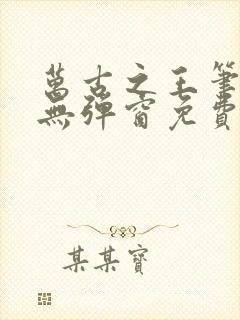 萬古之王筆
無彈窗免費
某某寶